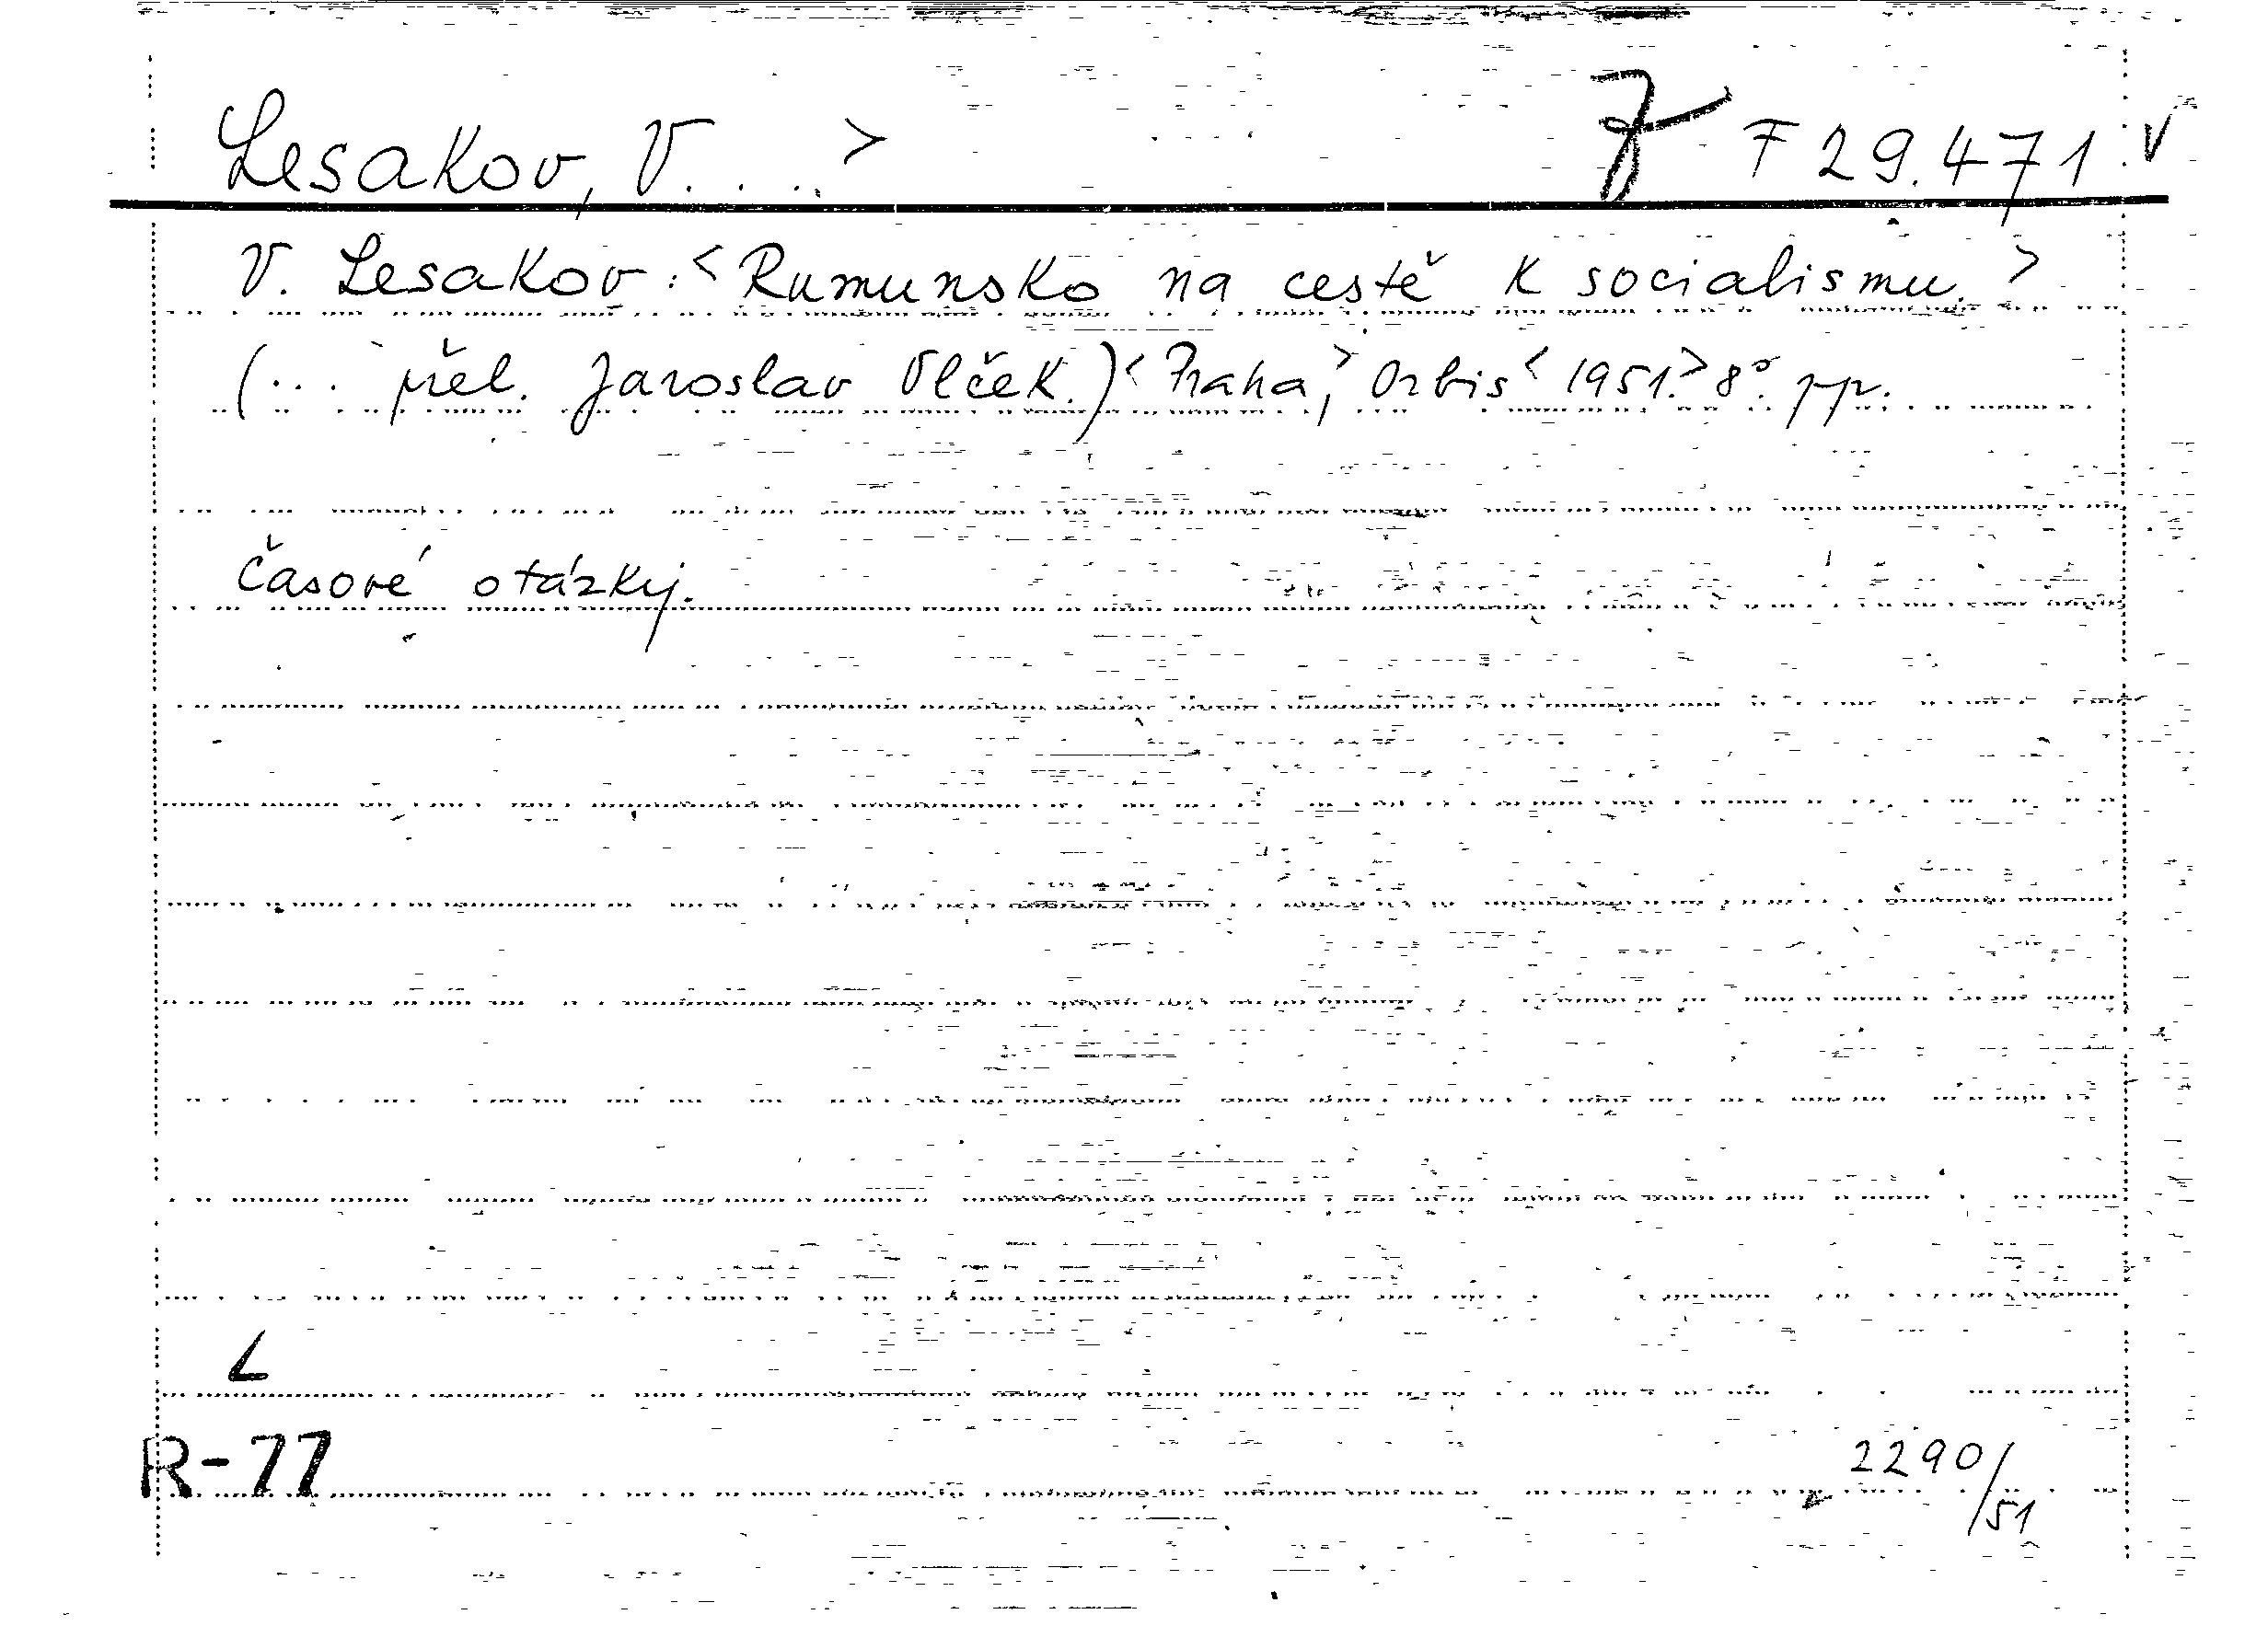 Lesakov, V. . . . > F 29.471 v
V. Lesakov: <Rumunsko na cestě k socialismu.>
(... přel. Jaroslav Vlček.) <Praha,> Orbis <1951.> 8°. pp.
Časové otázky.
L
R-77
2290/51